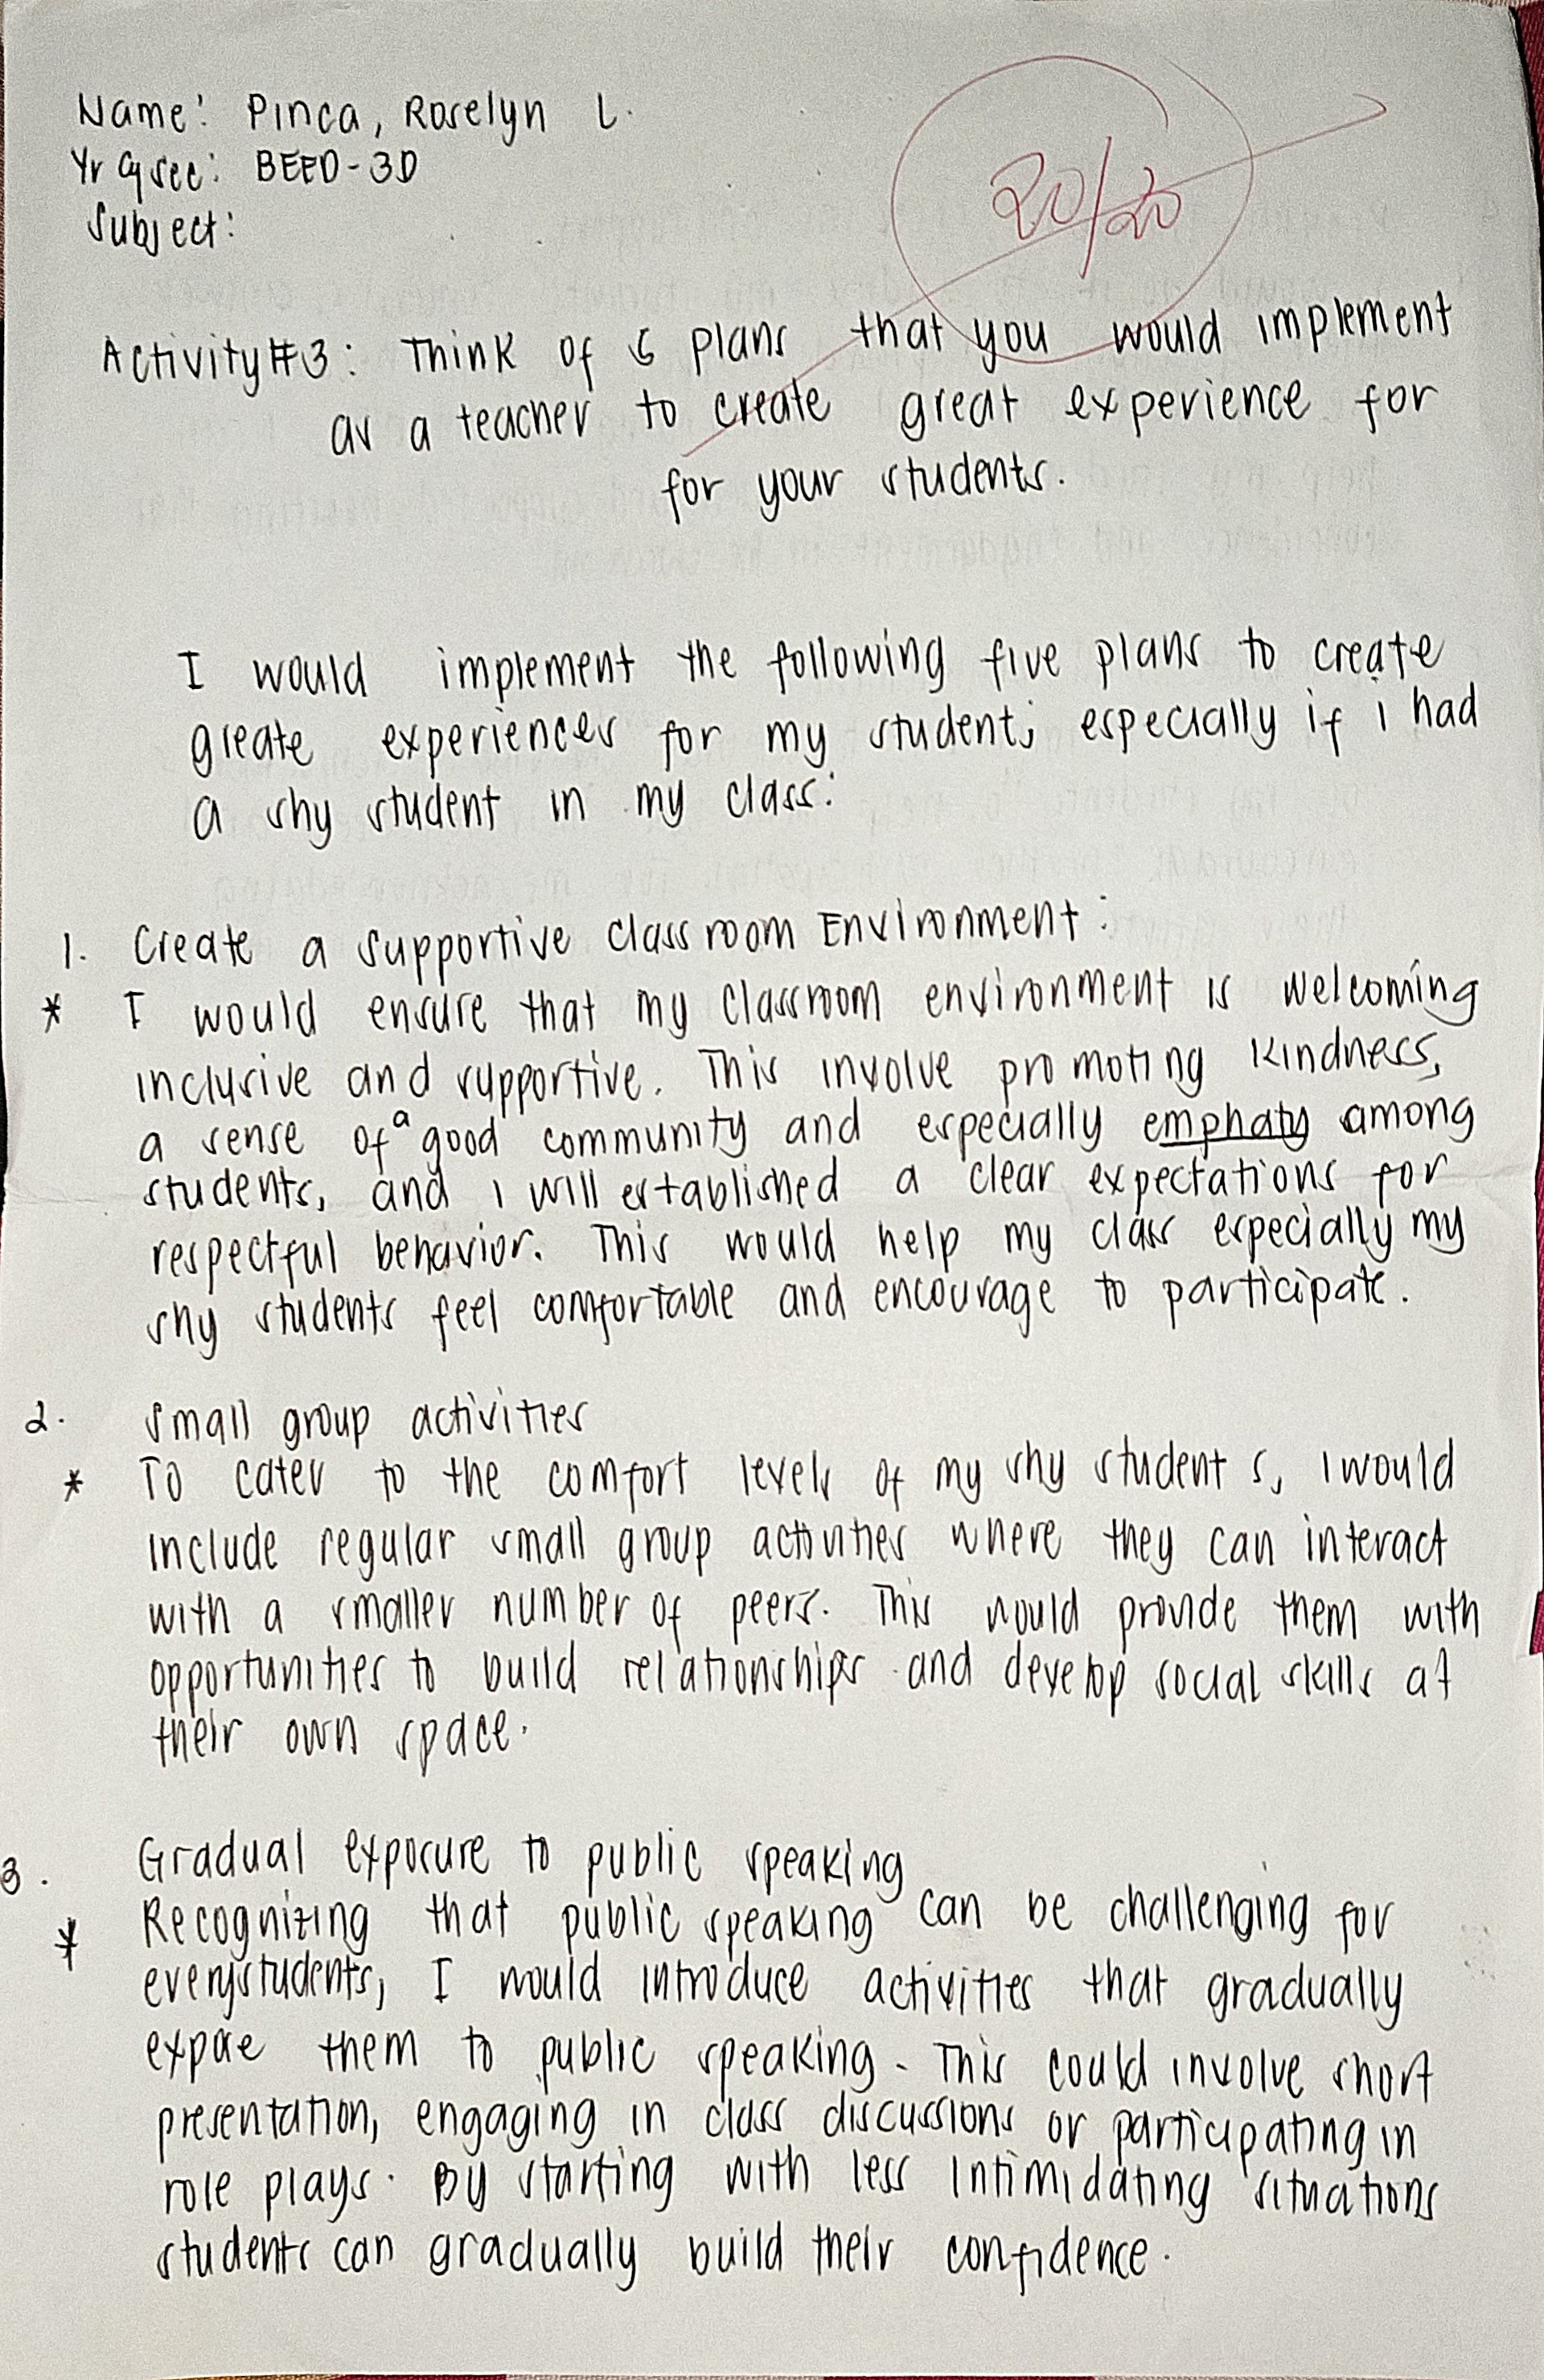 Name: Pinca, Roselyn L.
Yr & sec: BEED-3D
Subject:
20/20
Activity#3: Think of 5 plans that you would implement
as a teacher to create great experience for
for your students.
I would implement the following five plans to create
greate experiences for my student; especially if i had
a shy student in my class:
1. Create a supportive classroom Environment:
* I would ensure that my classroom environment is welcoming
inclusive and supportive. This involve promoting kindness,
a sense of a good community and especially emphaty among
students, and i will established a clear expectations for
respectful behavior. This would help my class especially my
shy students feel comfortable and encourage to participate.
2. Small group activities
* To cater to the comfort levels of my shy student s, I would
include regular small group activities where they can interact
with a smaller number of peers. This would provide them with
opportunities to build relationships and develop social skills at
their own space.
3. Gradual exposure to public speaking
* Recognizing that public speaking can be challenging for
everystudents, I would introduce activities that gradually
expose them to public speaking. This could involve short
presentation, engaging in class discussions or participating in
role plays. By starting with less intimidating situations
students can gradually build their confidence.